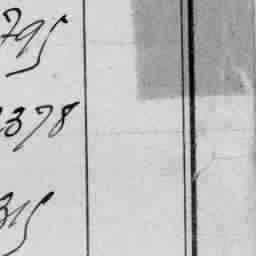 795
2378
315